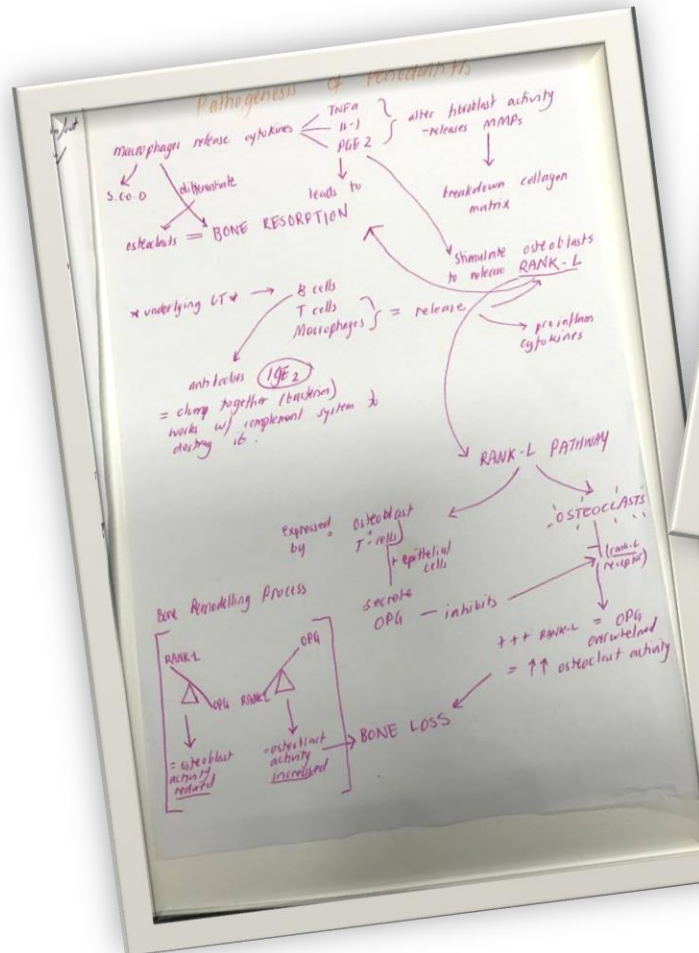 Pathogenesis of Periodontitis
macrophages release cytokines
TNFα
IL-1
PGE2
alter fibroblast activity
-releases MMPs
breakdown collagen
matrix
S.C.O.D
differentiate
leads to
osteoclasts = BONE RESORPTION
stimulate osteoblasts
to release RANK-L
*underlying CT* →
B cells
T cells
Macrophages
= release
pro inflam
cytokines
antibodies IgE2
= clump together (bacteria)
works w/ complement system to
destroy it.
RANK-L PATHWAY
expressed by =
osteoblast
T-cells
+ epithelial
cells
OSTEOCLASTS
(rank-L
receptor)
secrete
OPG — inhibits
+++ RANK-L = OPG
overwhelmed
= ↑↑ osteoclast activity
Bone Remodelling Process
RANK-L
OPG
OPG
RANKL
= osteoblast
activity
reduced
activity
increased
BONE LOSS